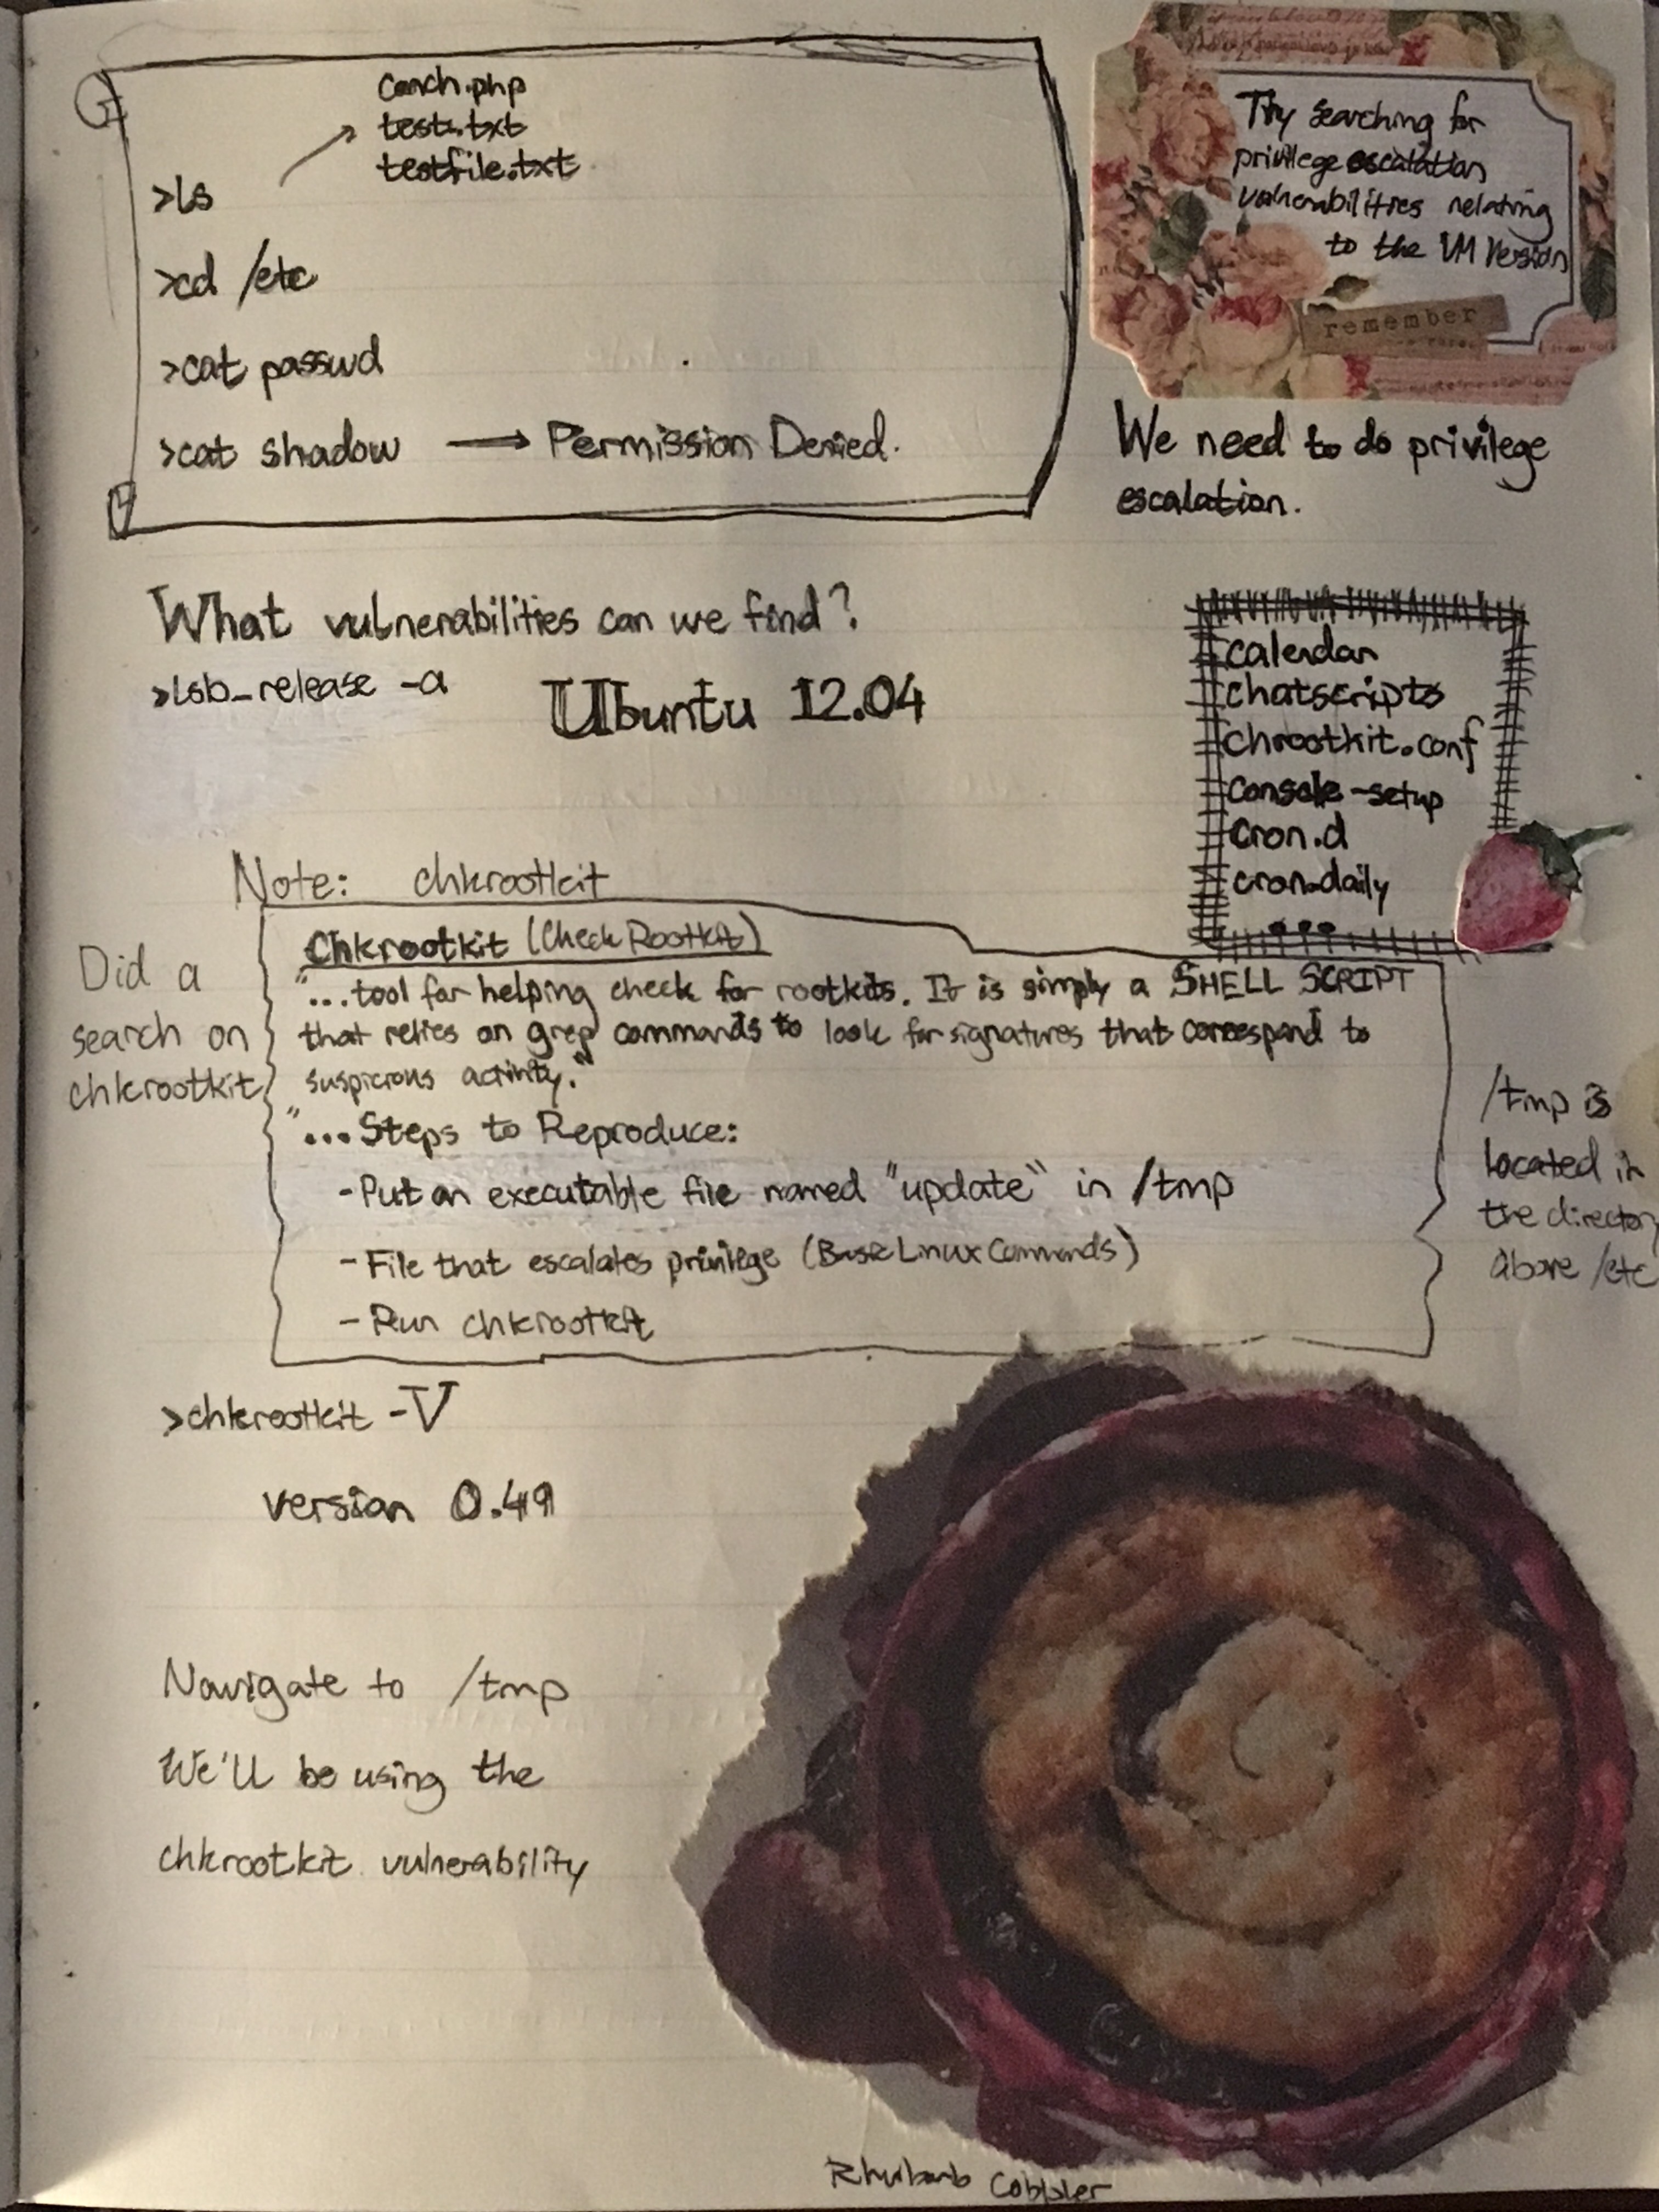 conch.php
test.txt
testfile.txt
>ls
>cd /etc
>cat passwd
>cat shadow → Permission Denied.
Try searching for
privilege escalation
vulnerabilities relating
to the VM Version
remember
We need to do privilege
escalation.
What vulnerabilities can we find?
>lsb_release -a
Ubuntu 12.04
calendar
chatscripts
chrootkit.conf
console-setup
cron.d
cron.daily
...
Note: chkrootkit
Did a
search on
chkrootkit
Chkrootkit (Check Rootkit)
"...tool for helping check for rootkits. It is simply a SHELL SCRIPT
that relies on grep commands to look for signatures that correspond to
suspicious activity."
"...Steps to Reproduce:
-Put an executable file named "update" in /tmp
-File that escalates privilege (Basic Linux Commands)
-Run chkrootkit
/tmp is
located in
the directory
above /etc
>chkrootkit -V
version 0.49
Navigate to /tmp
We'll be using the
chkrootkit vulnerability
Rhubarb Cobbler